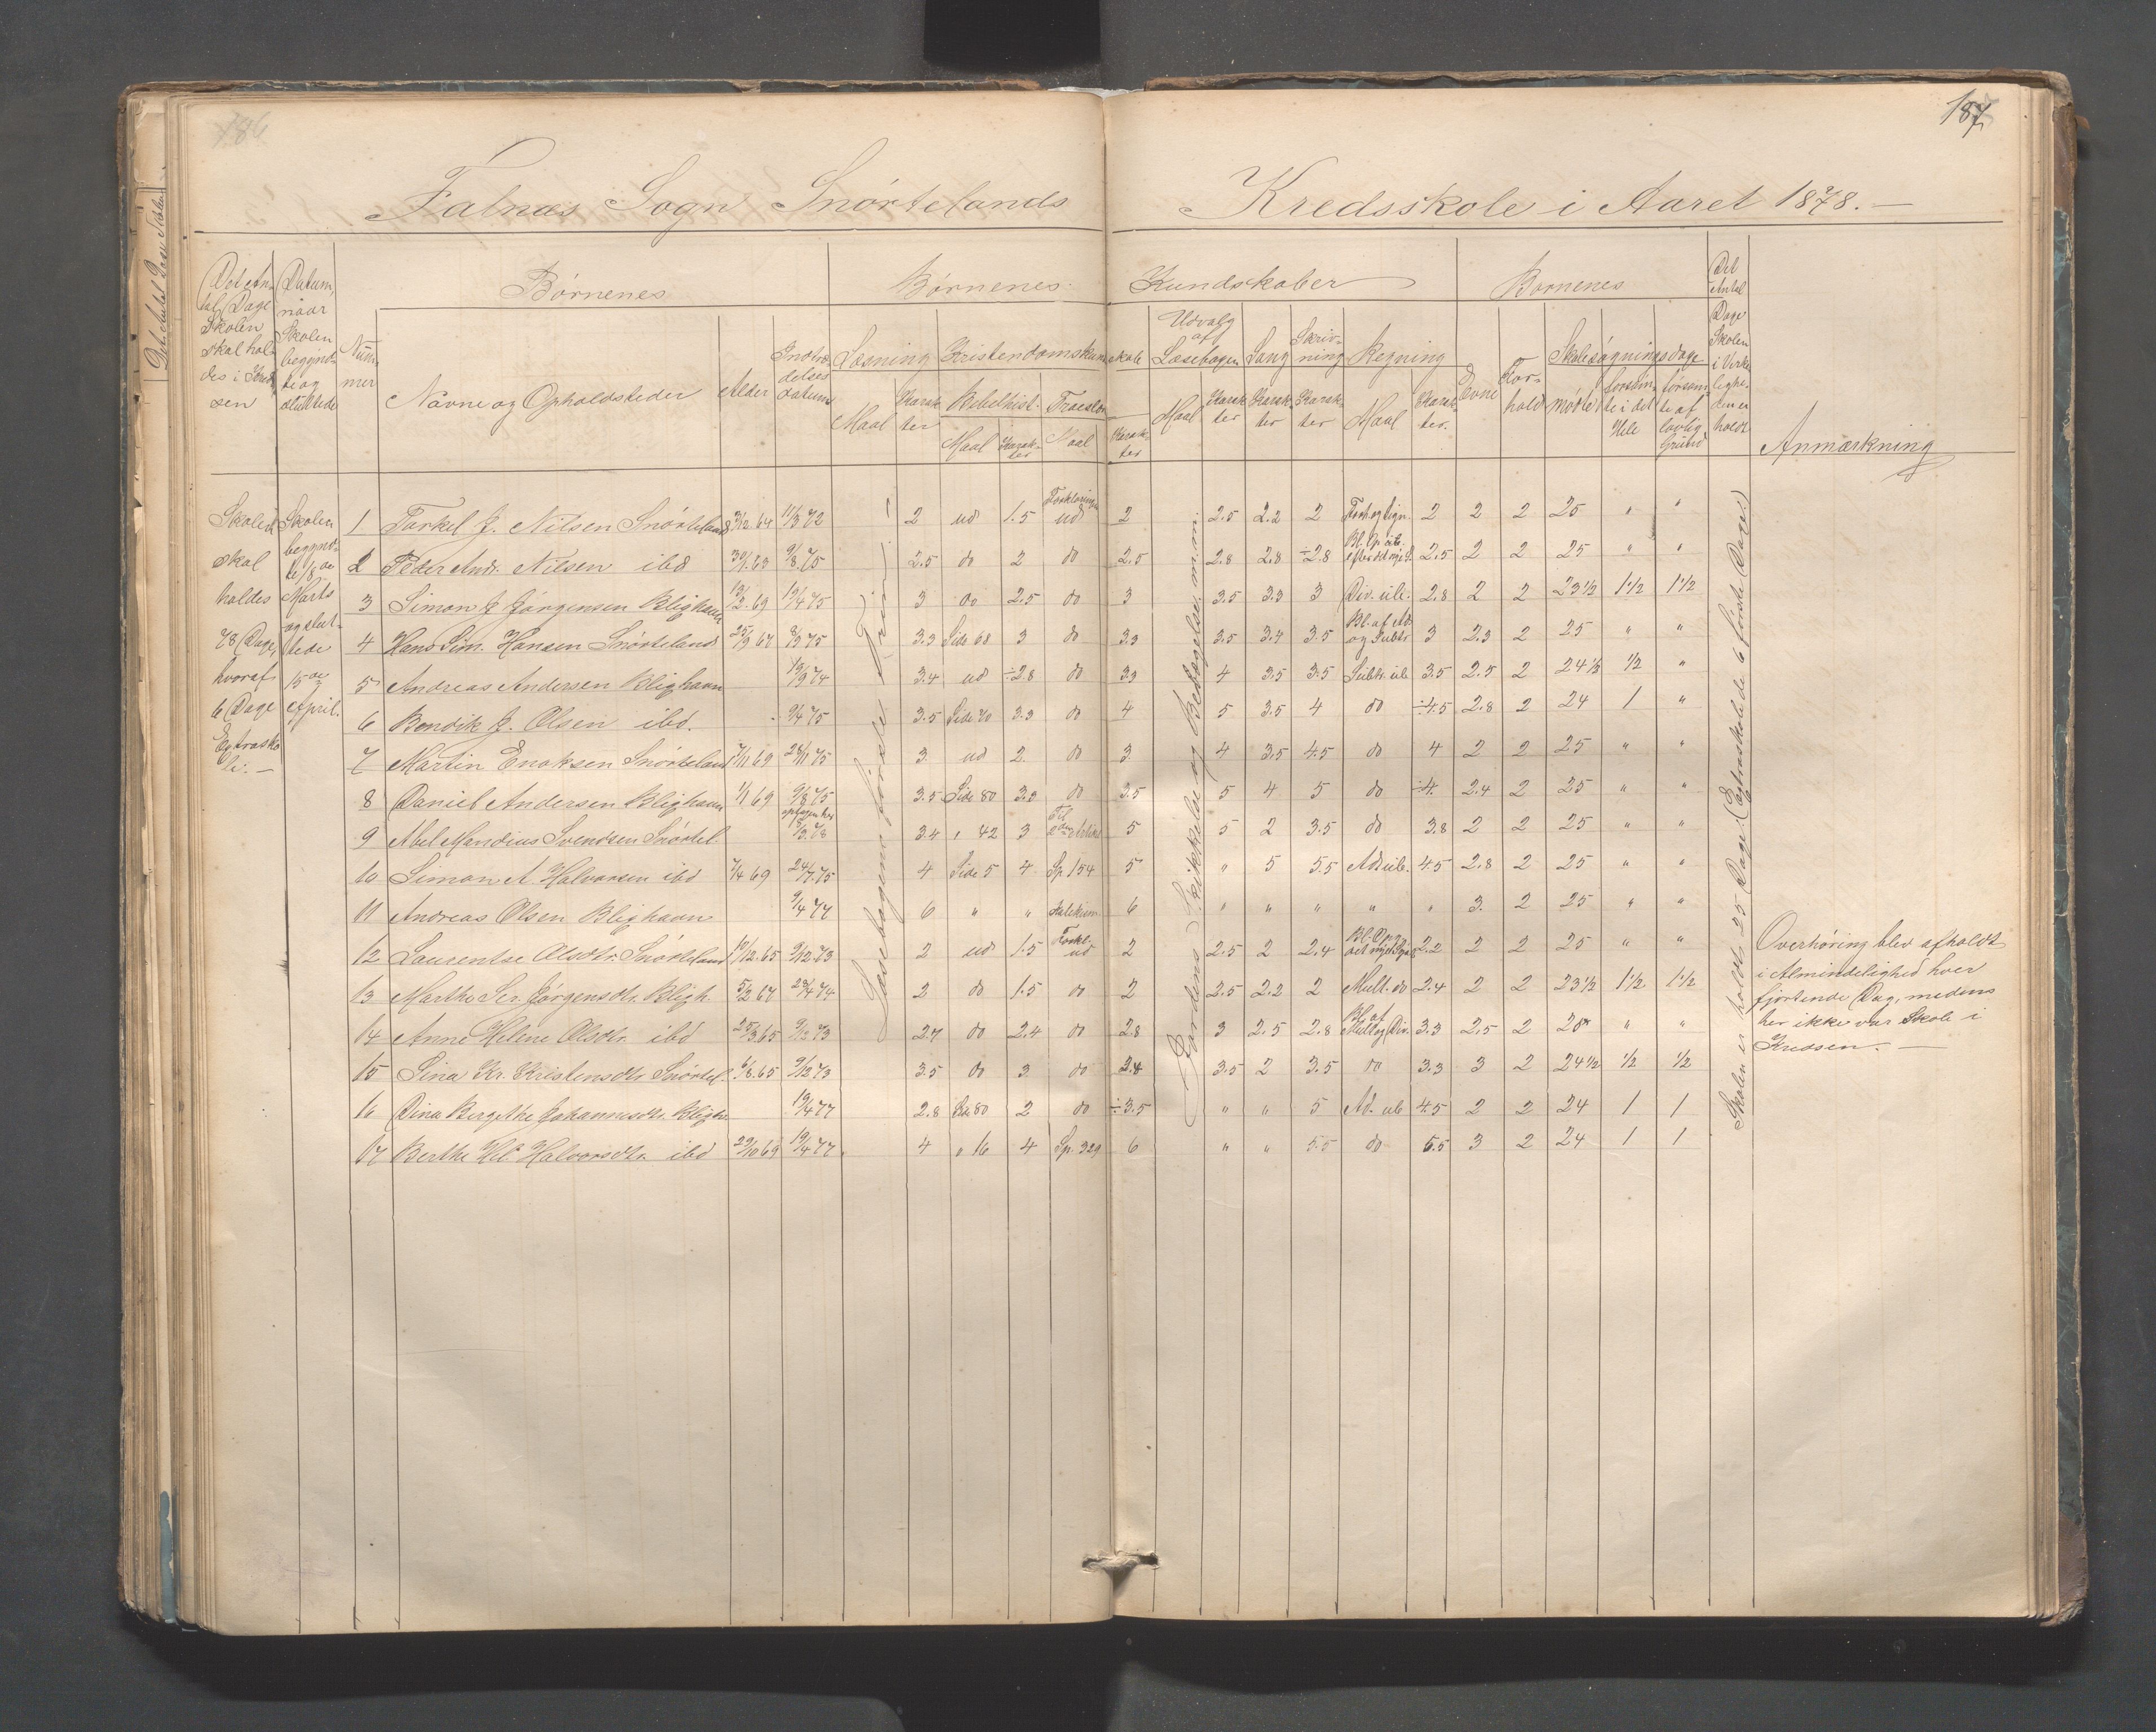 186
187
Falnæs Sogn Snørtelands Kredsskole i Aaret 1878. —
Det An-
tal Dage
Skolen
skal hol-
des i Kred-
sen
Datum,
naar
Skolen
begynd-
te og
sluttede
Num-
mer
Børnenes
Navne og Opholdsteder
Alder
Indtræ-
delses
datum
Børnenes Kundskaber
Læsning
Maal
Karak-
ter
Kristendomskundskab
Bibelhist.
Maal
Karak-
ter
Troeslære
Maal
Karak-
ter
Udvalg
af
Læsebogen
Maal
Karak-
ter
Sang
Karak-
ter
Skriv-
ning
Karak-
ter
Regning
Maal
Karak-
ter.
Børnenes
Evne
For-
hold
Skolesøgningsdage
mødte
forsøm-
te i det
Hele
forsøm-
te af
lovlig
Grund
Det
Antal
Dage
Skolen
i Virke-
lighe-
den er
holdt
Anmærkning
Skolen
skal
holdes
78 Dage,
hvoraf
6 Dage
Extrasko-
le. —
Skolen
begynd-
te 18de
Marts
og slut-
tede
15de
April.
Læsebogens første Trin
Jordens Skikkelse og Bevægelse m.m.
Skolen er holdt 25 Dage. (Extraskole de 6 første Dage.)
1 Torkel J. Nilsen Snørteland 3/12 64 11/3 72 2 ud 1.5 Forklaringen ud 2 2.5 2.2 2 Forh. og lign. 2 2 2 25 " "
2 Peder Andr. Nilsen ibd 30/1 63 9/8 75 2.5 do 2 do 2.5 2.8 2.8 ÷2.8 2.5 2 2 25 " "
3 Simon J. Jørgensen Blighavn 13/2 69 19/4 75 3 do 2.5 do 3 3.5 3.3 3 Div. ub. 2.8 2 2 23 1/2 1 1/2 1 1/2
4 Hans Sim. Hansen Snørteland 25/9 67 8/3 75 3.3 Side 68 3 do 3.3 3.5 3.4 3.5 Bl. af Ad. og Subtr. 3 2.3 2 25 " "
5 Andreas Andersen Blighavn 19/9 74 3.4 ud ÷2.8 do 3.9 4 3.5 3.5 Subtr. ub 3.5 2.5 2 24 1/2 1/2 "
6 Bendik J. Olsen ibd. 9/4 75 3.5 Side 70 3.3 do 4 5 3.5 4 do ÷4.5 2.8 2 24 1 "
7 Martin Enoksen Snørteland 7/11 69 28/11 75 3 ud 2 do 3 4 3.5 4.5 do 4 2 2 25 " "
8 Daniel Andersen Blighavn 1/1 69 9/8 75 3.5 Side 80 3.3 do 3.5 5 4 5 do ÷4. 2.4 2 25 " "
9 Abel Mandius Svendsen Snørtel. 8/3 78 3.4 " 42 3 Til 2den Artikel 5 5 2 3.5 do 3.8 2 2 25 " "
10 Simon A Halvorsen ibd 7/4 69 24/7 75 4 Side 5 4 Sp. 154 5 " 5 5.5 Ad ub. 4.5 2.8 2 25 " "
11 Andreas Olsen Blighavn 9/4 77 6 " " Katekism. 6 " " " " " 3. 2 25 " "
12 Laurentse Olsdtr. Snørteland 10/12 65 9/12 73 2 ud 1.5 Forkl. ud 2 2.5 2 2.4 2.2 2 2 25 " "
13 Marthe Ser. Jørgensdtr. Bligh. 5/2 67 28/4 74 2 do 1.5 do 2 2.5 2.2 2 Mult. do 2.4 2 2 23 1/2 1 1/2 1 1/2
14 Anne Helene Olsdtr. ibd 25/3 65 9/12 73 2.7 do 2.4 do 2.8 3 2.5 2.8 Bl. af Mult og Div. 3.3 2.5 2 " "
15 Sina Kr. Kristensdtr Snørtel. 6/8 65 9/12 73 3.5 do 3 do 2.8 3.5 2 3.5 do 3.3 3 2 24 1/2 1/2 1/2
16 Dina Bergithe Johannesdtr. Blighv. 19/4 77 2.8 Side 80 2 do ÷3.5 " " 5 Ad. ub 4.5 2 2 24 1 1
17 Berthe Hel. Halvorsdtr. ibd 29/10 69 19/4 77 4 " 16 4 Sp. 329 6 " " 5.5 do 5.5 3 2 24 1 1
Overhøring blev afholdt
i Almindelighed hver
fjortende Dag, medens
her ikke var Skole i
Kredsen. —